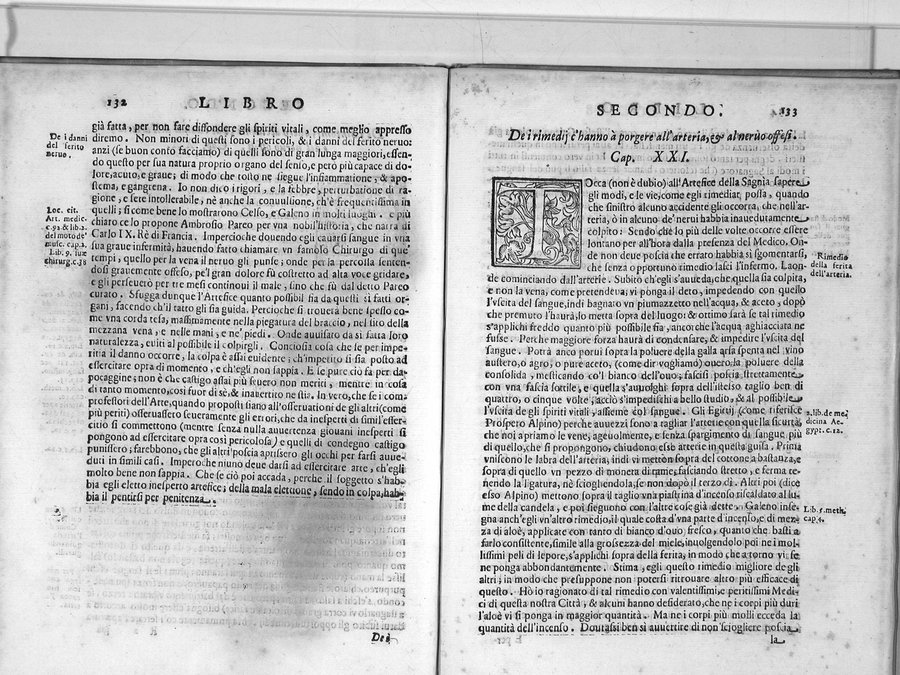 132 LIBRO
De i danni
del ferito
neruo.
già fatta, per non fare diffondere gli spiriti vitali, come meglio appresso
diremo. Non minori di questi sono i pericoli, & i danni del ferito neruo:
anzi (se buon conto facciamo) di quelli sono di gran lunga maggiori, essen-
do questo per sua natura proprio organo del senso, e però più capace di do-
lore, acuto, e graue; di modo che tosto ne siegue l'infiammatione, & apo-
stema, e gangrena. Io non dico i rigori, e la febbre, perturbatione di ra-
gione, e sete intollerabile, nè anche la conuulsione, ch'è frequentissima in
Loc. cit.
Art. medic.
c.92 & lib.2.
del moto de'
musc. cap.2.
Lib. 9. suæ
chirurg. c.38
quelli; sì come bene lo mostrarono Celso, e Galeno in molti luoghi. e più
chiaro ce lo propone Ambrosio Pareo per vna nobil'historia, che narra di
Carlo IX. Rè di Francia. Impercioche douendo egli cauarsi sangue in vna
sua graue infermità, hauendo fatto chiamare vn famoso Chirurgo di que'
tempi, quello per la vena il neruo gli punse; onde per la percossa senten-
dosi grauemente offeso, pe'l gran dolore fù costretto ad alta voce gridare,
e gli perseuerò per tre mesi continoui il male, sino che fù dal detto Pareo
curato. Sfugga dunque l'Artefice quanto possibil sia da questi sì fatti or-
gani, facendo ch'il tatto gli sia guida. Percioche si trouerà bene spesso co-
me vna corda tesa, massimamente nella piegatura del braccio, nel sito della
mezzana vena, e nelle mani, e ne' piedi. Onde auuisato da sì fatta loro
naturalezza, euiti al possibile il colpirgli. Conciosia cosa che se per impe-
ritia il danno occorre, la colpa è assai euidente; ch'impetito si sia posto ad
essercitare opra di momento, e ch'egli non sappia. E se pure ciò fa per da-
pocaggine; non è che castigo assai più seuero non meriti, mentre in cosa
di tanto momento, così fuor di sè, & inauertito ne stia. In vero, che se i com-
professori dell'Arte, quando proposti siano all'osseruationi de gli altri (come
più periti) osseruassero seueramente gli errori, che da inesperti di simil'esser-
citio si commettono (mentre senza nulla auuertenza giouani inesperti si
pongono ad essercitare opra così pericolosa) e quelli di condegno castigo
punissero; farebbono, che gli altri'poscia aprissero gli occhi per farsi auue-
duti in simili casi. Imperoche niuno deue darsi ad essercitare arte, ch'egli
molto bene non sappia. Che se ciò poi accada, perche il soggetto s'hab-
bia egli eletto inesperto artefice; della mala elettione, sendo in colpa, hab-
bia il pentirsi per penitenza.
De i
SECONDO. 133
De i rimedij c'hanno à porgere all'arteria, & al neruo offesi.
Cap. XXI.
TOcca (non è dubio) all'Artefice della Sagnia sapere
gli modi, e le vie, come egli rimediar possa, quando
che sinistro alcuno accidente gli occorra, che nell'ar-
teria, ò in alcuno de' nerui habbia inauedutamente
colpito: Sendo che lo più delle volte occorre essere
lontano per all'hora dalla presenza del Medico. On-
de non deue poscia che errato habbia sì sgomentarsi,
che senza opportuno rimedio lasci l'infermo. Laon-
Rimedio
della ferita
dell'arteria.
de cominciando dall'arterie. Subito ch'egli s'auueda, che quella sia colpita,
e non la vena, come pretendeua; vi ponga il deto, impedendo con quello
l'vscita del sangue, indi bagnato vn piumazzetto nell'acqua, & aceto, dopò
che premuto l'haurà, lo metta sopra del luogo: & ottimo sarà se tal rimedio
s'applichi freddo quanto più possibile sia, ancorche l'acqua agghiacciata ne
fusse. Perche maggiore forza haurà di condensare, & impedire l'vscita del
sangue. Potrà anco porui sopra la poluere della galla arsa spenta nel vino
austero, o agro, o pure aceto, (come dir vogliamo) ouero la poluere della
consolida, mesticando co'l bianco dell'ouo, fascisi poscia strettamente
con vna fascia sottile, e quella s'auuolghi sopra dell'istesso taglio ben di
quattro, o cinque volte; acciò s'impedischi a bello studio, & al possibile
l'vscita de gli spiriti vitali, assieme col sangue. Gli Egittij (come riferisce
2. lib. de me-
dicina Ae-
gypt. c.12.
Prospero Alpino) per auuezzi sono a tagliar l'arterie con quella sicurtà,
che noi apriamo le vene, ageuolmente, e senza spargimento di sangue, più
di quello, che si propongono, chiudono esse arterie in questa guisa. Prima
vniscono le labra dell'arteria, indi vi metton sopra del cotone a bastanza, e
sopra di quello vn pezzo di moneta di rame, fasciando stretto, e ferma te-
nendo la ligatura, nè sciogliendola, se non dopò il terzo dì. Altri poi (dice
esso Alpino) mettono sopra il taglio vna piastrina d'incenso riscaldato al lu-
me della candela, e poi sieguono con l'altre cose già dette. Galeno inse-
Lib. 5. meth.
cap. 4.
gna anch'egli vn'altro rimedio, il quale costa d'vna parte d'incenso, e di mez-
za di aloè, applicate con tanto di bianco d'ouo fresco, quanto che basti a
farlo consistente, simile alla grossezza del miele, inuolgendolo poi ne i mol-
lissimi peli di lepore, s'applichi sopra della ferita, in modo che a torno vi se
ne ponga abbondantemente. Stima, egli questo rimedio migliore de gli
altri; in modo che presuppone non potersi ritrouare altro più efficace di
questo. Hò io ragionato di tal rimedio con valentissimi, e peritissimi Medi-
ci di questa nostra Città, & alcuni hanno desiderato, che ne i corpi più duri
l'aloè vi si ponga in maggior quantità. Ma ne i corpi più molli ecceda la
quantità dell'incenso. Dourassi ben sì auuertire di non sciogliere poscia
la